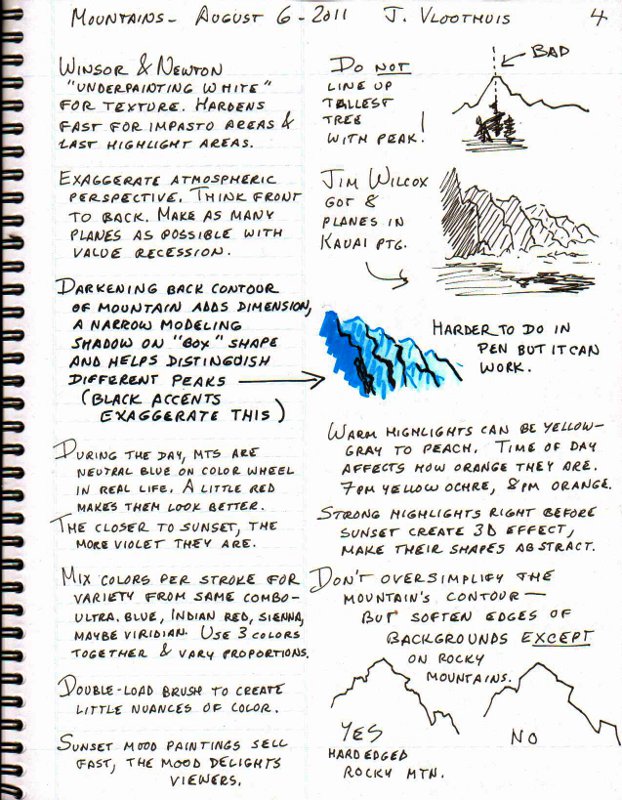 MOUNTAINS - AUGUST 6 - 2011 J. VLOOTHUIS 4
WINSOR & NEWTON
"UNDERPAINTING WHITE"
FOR TEXTURE. HARDENS
FAST FOR IMPASTO AREAS &
LAST HIGHLIGHT AREAS.
EXAGGERATE ATMOSPHERIC
PERSPECTIVE. THINK FRONT
TO BACK. MAKE AS MANY
PLANES AS POSSIBLE WITH
VALUE RECESSION.
DARKENING BACK CONTOUR
OF MOUNTAIN ADDS DIMENSION,
A NARROW MODELING
SHADOW ON "BOX" SHAPE
AND HELPS DISTINGUISH
DIFFERENT PEAKS
(BLACK ACCENTS
EXAGGERATE THIS)
DURING THE DAY, MTS ARE
NEUTRAL BLUE ON COLOR WHEEL
IN REAL LIFE. A LITTLE RED
MAKES THEM LOOK BETTER.
THE CLOSER TO SUNSET, THE
MORE VIOLET THEY ARE.
MIX COLORS PER STROKE FOR
VARIETY FROM SAME COMBO-
ULTRA. BLUE, INDIAN RED, SIENNA,
MAYBE VIRIDIAN. USE 3 COLORS
TOGETHER & VARY PROPORTIONS.
DOUBLE-LOAD BRUSH TO CREATE
LITTLE NUANCES OF COLOR.
SUNSET MOOD PAINTINGS SELL
FAST, THE MOOD DELIGHTS
VIEWERS.
DO NOT
LINE UP
TALLEST
TREE
WITH PEAK!
BAD
JIM WILCOX
GOT 8
PLANES IN
KAUAI PTG.
HARDER TO DO IN
PEN BUT IT CAN
WORK.
WARM HIGHLIGHTS CAN BE YELLOW-
GRAY TO PEACH. TIME OF DAY
AFFECTS HOW ORANGE THEY ARE.
7PM YELLOW OCHRE, 8PM ORANGE.
STRONG HIGHLIGHTS RIGHT BEFORE
SUNSET CREATE 3D EFFECT,
MAKE THEIR SHAPES ABSTRACT.
DON'T OVERSIMPLIFY THE
MOUNTAIN'S CONTOUR—
BUT SOFTEN EDGES OF
BACKGROUNDS EXCEPT
ON ROCKY
MOUNTAINS.
YES
HARD EDGED
ROCKY MTN.
NO